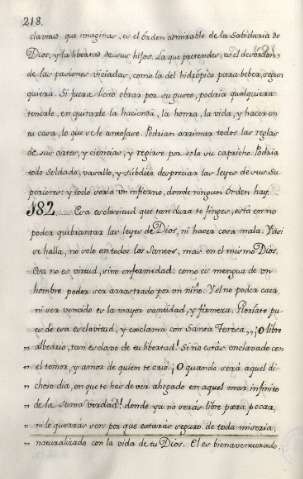 218.
clavitud que imaginas, es el órden admirable de la Sabiduria de
Dios, y la libertad de sus hijos. La que pretendes, es el desorden
de las pasiones viciadas, como la del hidrópico para beber, segun
quiera. Si fuera licito obrar por su gusto, podria qualquiera
tentarlo, en quitarte la hacienda, la honra, la vida, y hacer en
tu casa, lo que se le antojase. Podrian arrimar todos las reglas
de sus artes, y ciencias, y regirse por solo su capricho. Podria
todo Soldado, vasallo, y súbdito despreciar las leyes de sus Su-
periores: y todo seria un infierno, donde ningun orden hay.
182. Esa esclavitud que tan dura te finges, esta en no
poder quebrantar las leyes de Dios, ni hacer cosa mala. Y esa
se halla, no solo en todos los Santos, mas en el mismo Dios.
Esa no es virtud, sino enfermedad: como es mengua de un
hombre poder ser arrastrado por un niño. Y el no poder caer,
ni ser vencido es la mayor santidad, y firmeza. Gloriate pu-
es de esa esclavitud, y exclama con Santa Teresa,,, ¡O libre
,, albedrio, tan esclavo de tu libertad! Si no estás enclavado con
,, el temor, y amor de quien te crió. ¡O quando será aquel di-
,, choso dia, en que te has de ver ahogado en aquel mar infinito
,, de la suma verdad! donde ya no serás libre para pecar,
,, ni lo querrás ser: por que estarás seguro de toda miseria,
,, naturalizado con la vida de tu Dios. El es bienaventurado